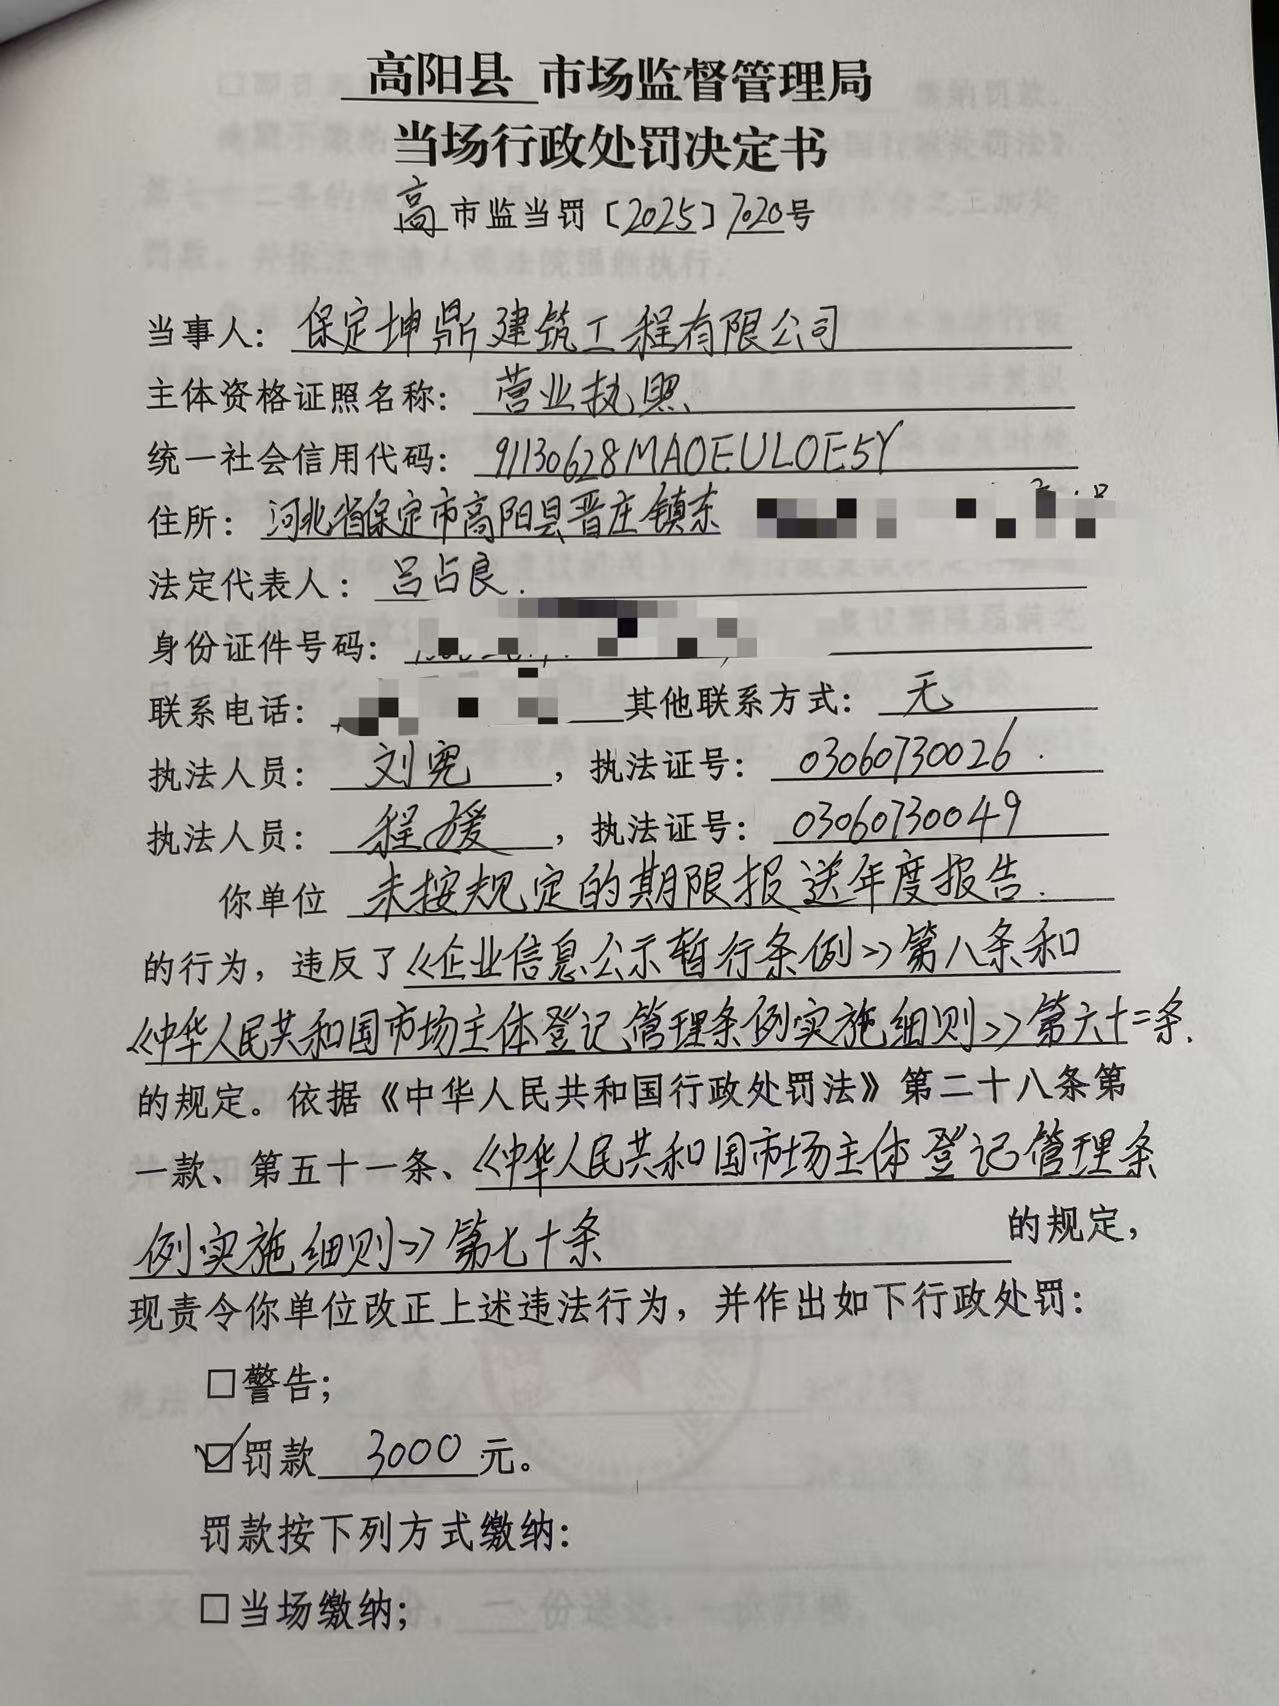 高阳县 市场监督管理局
当场行政处罚决定书
高 市监当罚〔2025〕7020号
当事人：保定坤鼎建筑工程有限公司
主体资格证照名称：营业执照
统一社会信用代码：91130628MA0EUL0E5Y
住所：河北省保定市高阳县晋庄镇东
法定代表人：吕占良.
身份证件号码：
联系电话： 其他联系方式：无
执法人员：刘宪，执法证号：03060730026.
执法人员：程媛，执法证号：03060730049
你单位 未按规定的期限报送年度报告.
的行为，违反了《企业信息公示暂行条例》第八条和
《中华人民共和国市场主体登记管理条例实施细则》第六十二条.
的规定。依据《中华人民共和国行政处罚法》第二十八条第
一款、第五十一条、《中华人民共和国市场主体登记管理条
例实施细则》第七十条 的规定，
现责令你单位改正上述违法行为，并作出如下行政处罚：
□警告；
☑罚款 3000 元。
罚款按下列方式缴纳：
□当场缴纳；